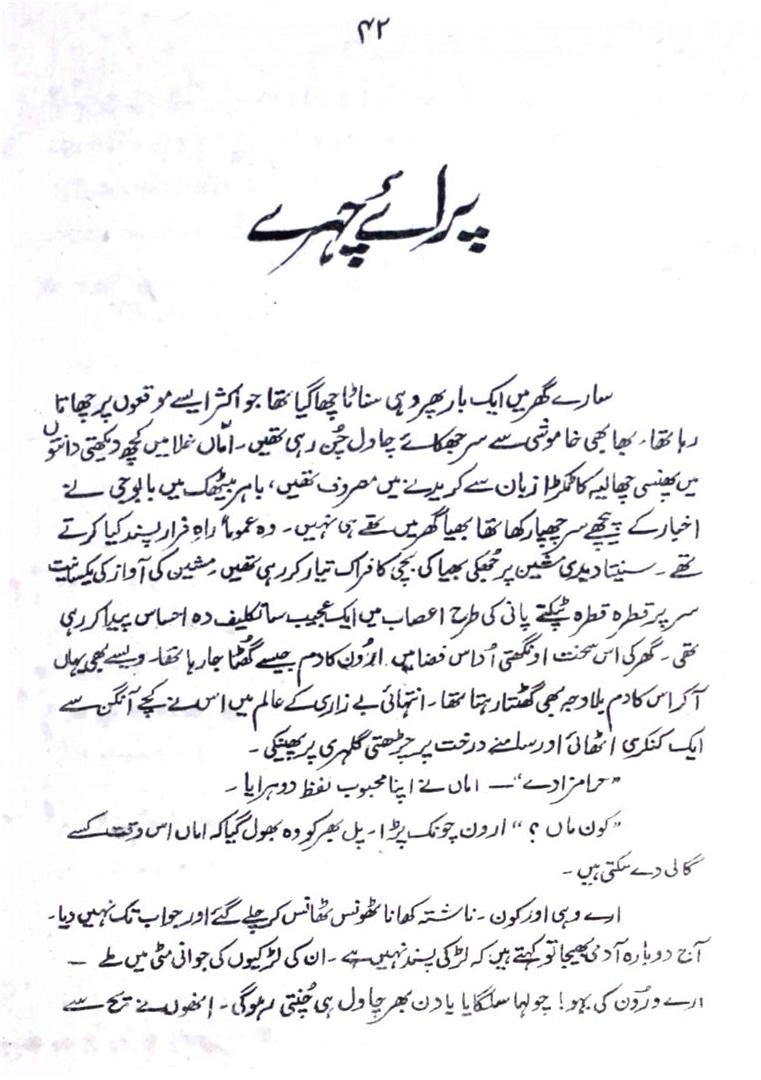 ۴۲
پرائے چہرے
سارے گھر میں ایک بار پھر وہی سناٹا چھا گیا تھا جو اکثر ایسے موقعوں پر چھاتا
رہا تھا۔ بھابھی خاموشی سے سر جھکائے چاول چُن رہی تھیں۔ امّاں خلا میں کچھ دیکھتی دانتوں
میں پھنسی چھالیہ کا ٹکڑا زبان سے کریدنے میں مصروف تھیں، باہر بیٹھک میں بابوجی نے
اخبار کے پیچھے سر چھپا رکھا تھا بھیا گھر میں تھے ہی نہیں۔ وہ عموماً راہِ فرار پسند کیا کرتے
تھے۔ سنیتا دیدی مشین پر جُھکی بھیا کی بچی کا فراک تیار کر رہی تھیں۔ مشین کی آواز کی یکسانیت
سر پر قطرہ قطرہ ٹپکتے پانی کی طرح اعصاب میں ایک عجیب سا تکلیف دہ احساس پیدا کر رہی
تھی۔ گھر کی اس سخت اونگھتی اُداس فضا میں ارُون کا دم جیسے گُھٹا جا رہا تھا۔ ویسے بھی یہاں
آ کر اس کا دم بلاوجہ بھی گھٹتا رہتا تھا۔ انتہائی بے زاری کے عالم میں اس نے کچے آنگن سے
ایک کنکری اٹھائی اور سامنے درخت پر چڑھتی گلہری پر پھینکی۔
"حرامزادے"— اماں نے اپنا محبوب لفظ دوہرایا۔
"کون ماں ؟" ارون چونک پڑا۔ پل بھر کو وہ بھول گیا کہ اماں اس وقت کسے
گالی دے سکتی ہیں۔
ارے وہی اور کون۔ ناشتہ کھانا ٹھونس ٹھانس کر چلے گئے اور جواب تک نہیں دیا۔
آج دوبارہ آدمی بھیجا تو کہتے ہیں کہ لڑکی پسند نہیں ہے۔ ان کی لڑکیوں کی جوانی مٹی میں ملے —
ارے ورُون کی بہو! چولہا سلگایا یا دن بھر چاول ہی چُنتی رہوگی۔ انھوں نے تڑخ سے